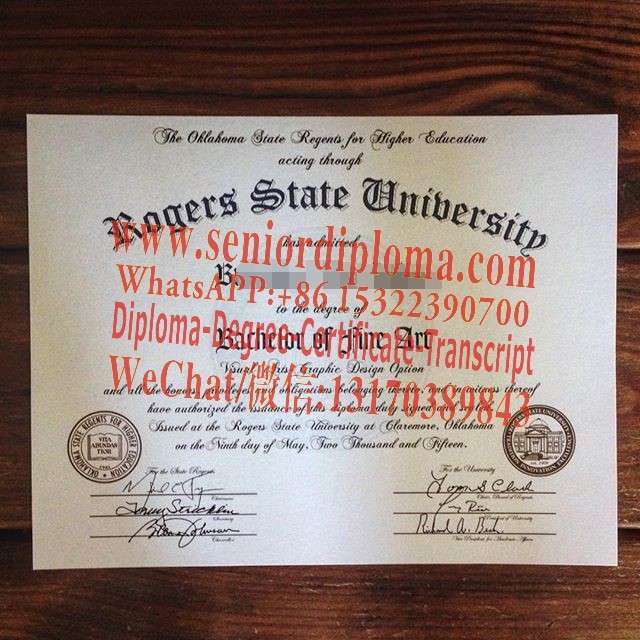 The Oklahoma State Regents for Higher Education
acting through
Rogers State University
has admitted
www.seniordiploma.com
B
WhatsAPP:+86 15322390700
to the degree of
Bachelor of Fine Art
Diploma-Degree-Certificate-Transcript
Visual Arts: Graphic Design Option
WeChat/微信:13170389843
and all the honors, privileges and obligations belonging thereto, and in witness thereof
have authorized the issuance of this diploma duly signed and sealed.
Issued at the Rogers State University at Claremore, Oklahoma
on the Ninth day of May, Two Thousand and Fifteen.
STATE REGENTS FOR HIGHER EDUCATION
VITA
ABUNDAN
TIOR
1941
STATE UNIVERSITY
For the State Regents
For the University
Chairman
Chair, Board of Regents
Secretary
President of University
Chancellor
Vice President for Academic Affairs